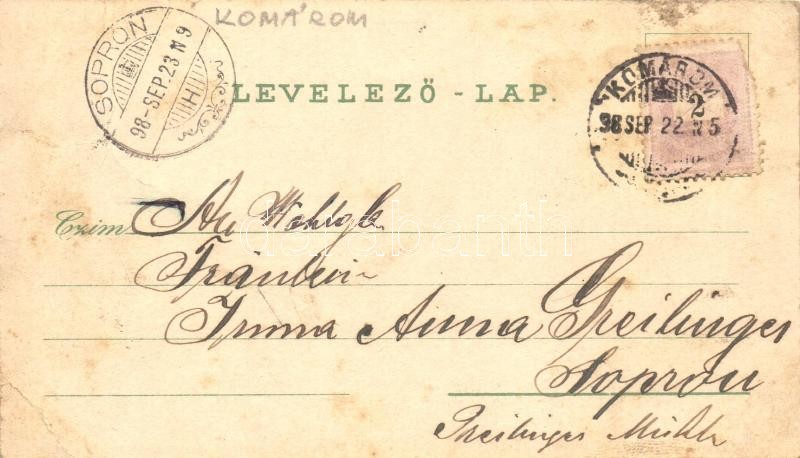 KOMÁROM
SOPRON
98-SEP.23 N 9
H
LEVELEZŐ-LAP.
KOMÁROM
2
98 SEP 22 N 5
Czim
An Wohlgb.
Fräulein
Irma Anna Greilinger
Sopron
Greilinger Mühle
darabanth